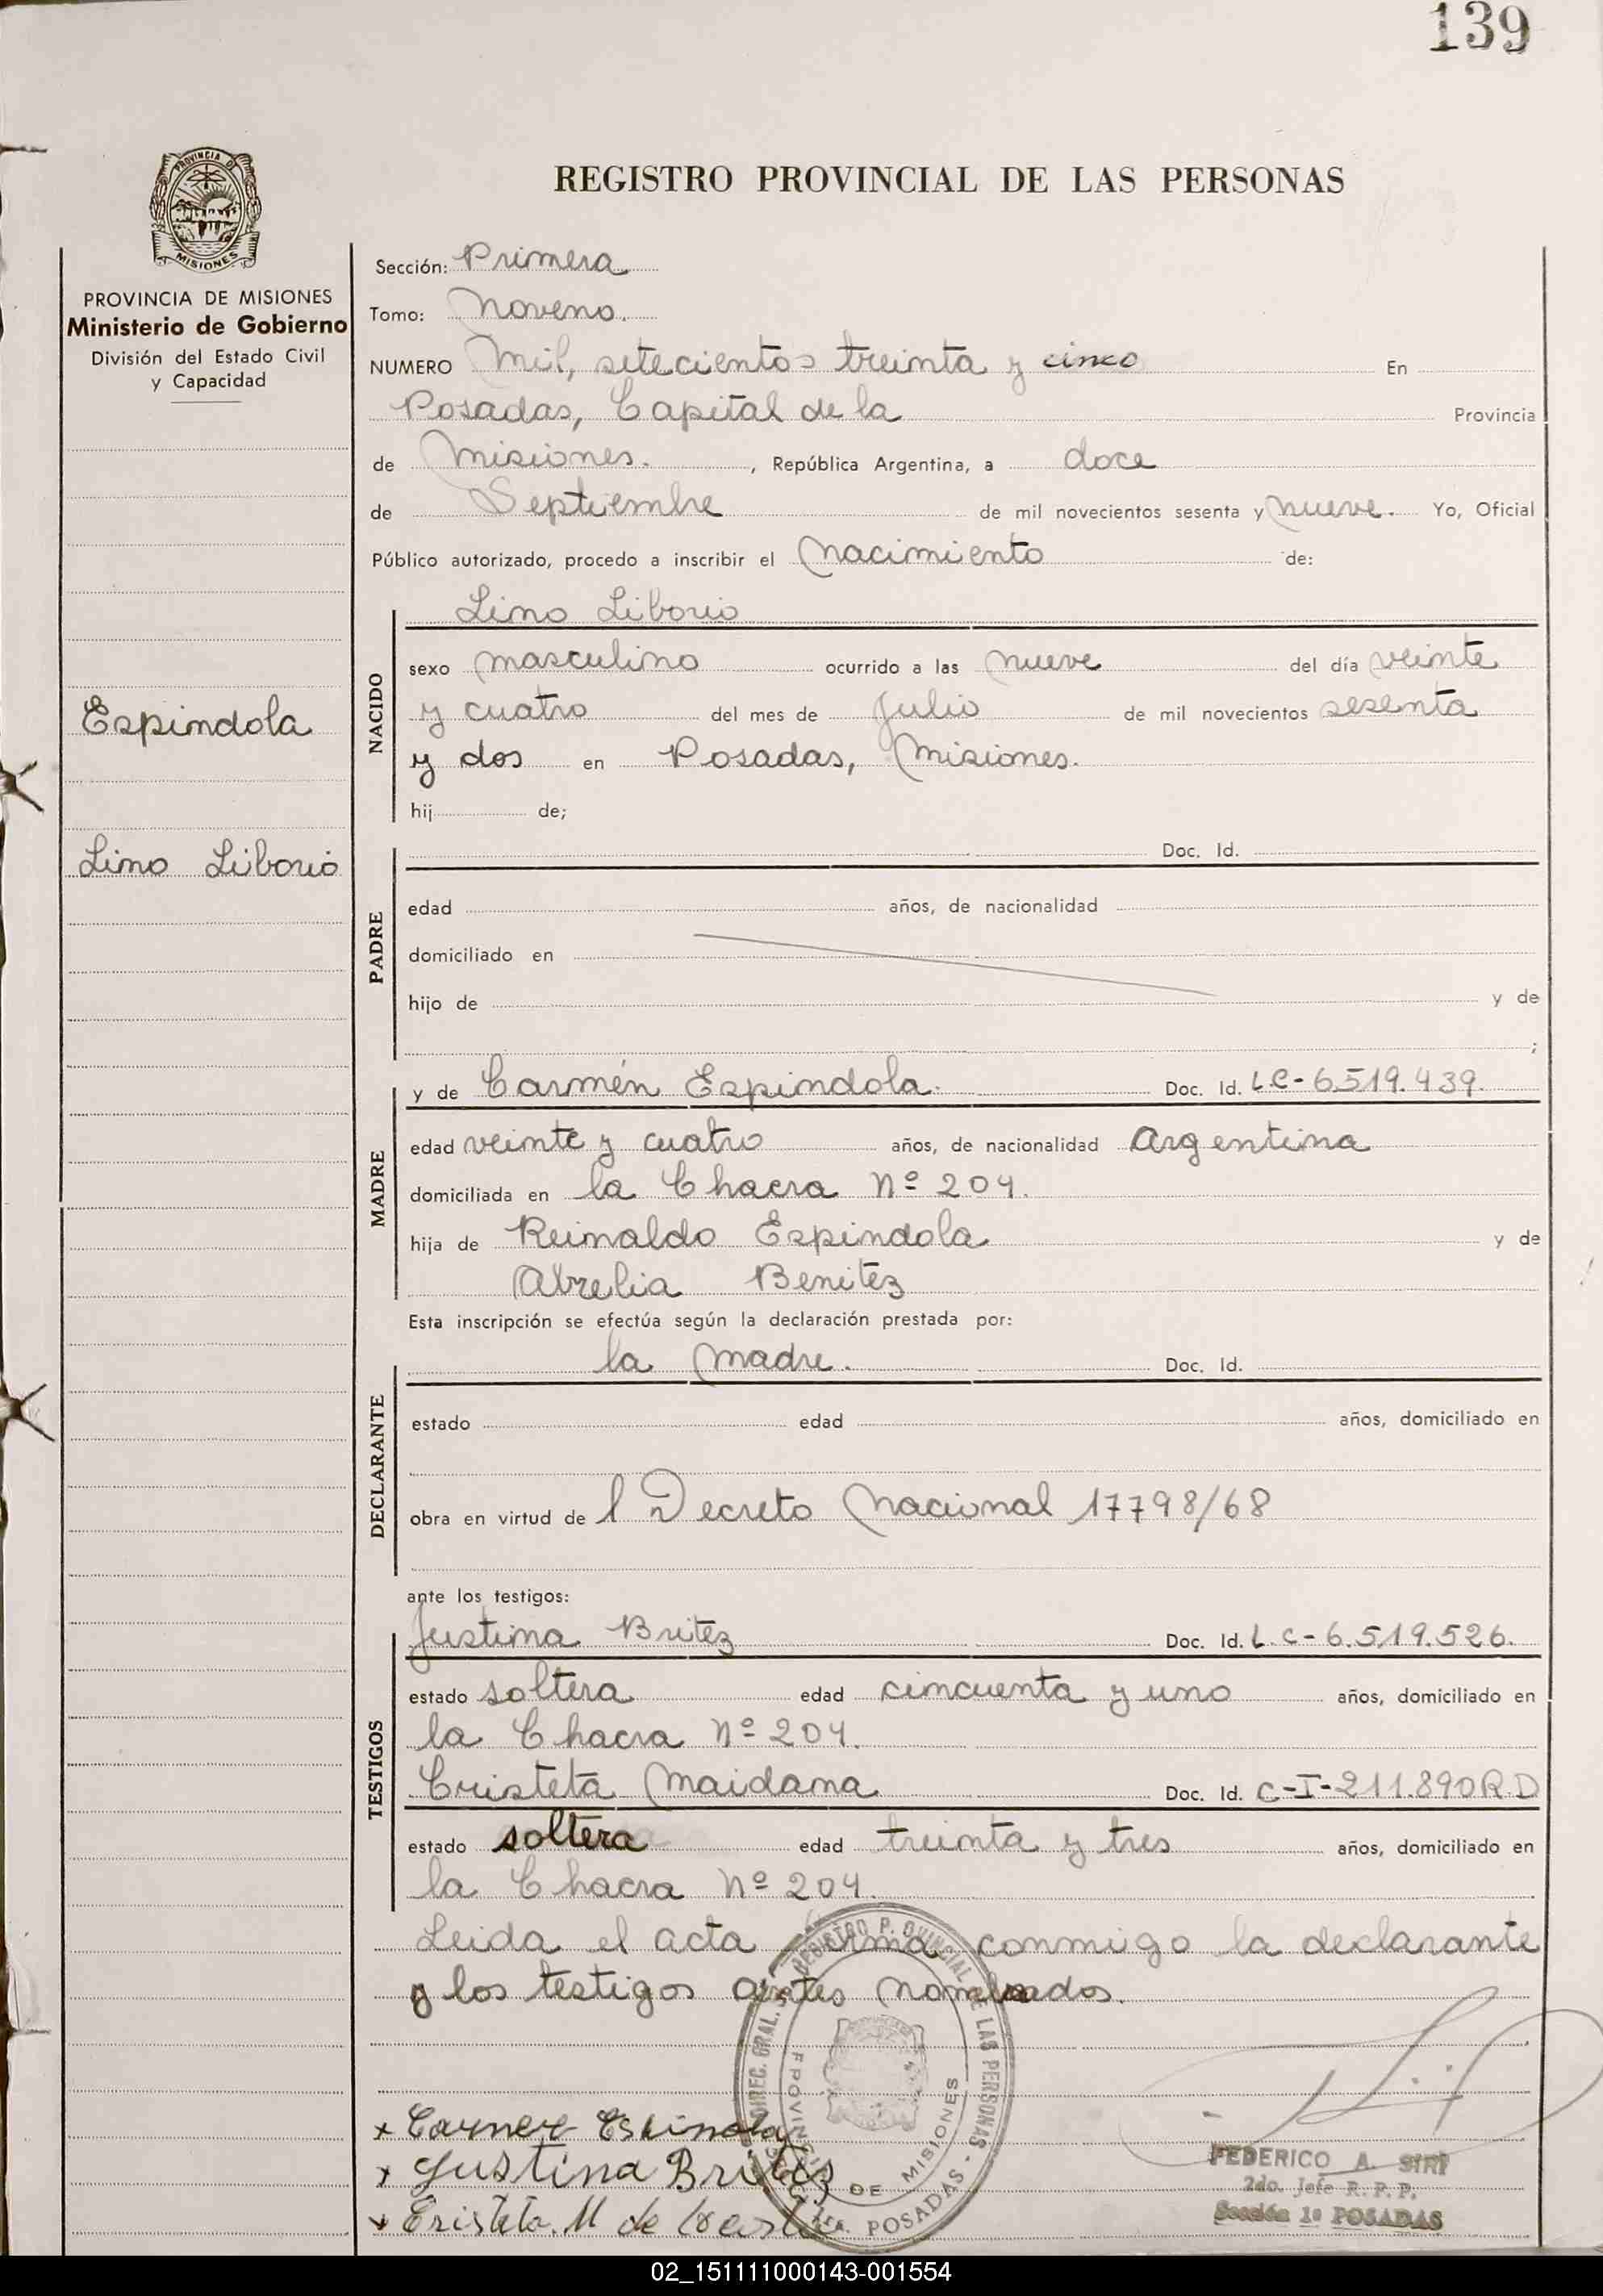 139
PROVINCIA DE
MISIONES
REGISTRO PROVINCIAL DE LAS PERSONAS
PROVINCIA DE MISIONES
Ministerio de Gobierno
División del Estado Civil
y Capacidad
Espindola
Lino Liborio
Sección: Primera
Tomo: Noveno.
NUMERO Mil, setecientos treinta y cinco En
Posadas, Capital de la Provincia
de Misiones. , República Argentina, a doce
de Septiembre de mil novecientos sesenta y nueve. Yo, Oficial
Público autorizado, procedo a inscribir el Nacimiento de:
NACIDO
Lino Liborio
sexo masculino ocurrido a las nueve del día veinte
y cuatro del mes de Julio de mil novecientos sesenta
y dos en Posadas, Misiones.
hij de;
PADRE
Doc. Id.
edad años, de nacionalidad
domiciliado en
hijo de y de
;
MADRE
y de Carmén Espindola. Doc. Id. L.C-6.519.439.
edad veinte y cuatro años, de nacionalidad Argentina
domiciliada en la Chacra Nº 204.
hija de Reinaldo Espindola y de
Benitez
Esta inscripción se efectúa según la declaración prestada por:
DECLARANTE
la Madre. Doc. Id.
estado edad años, domiciliado en
obra en virtud de l Decreto Nacional 17798/68
ante los testigos:
TESTIGOS
Justina Britez Doc. Id. L.C-6.519.526.
estado soltera edad cincuenta y uno años, domiciliado en
la Chacra Nº 204.
Cristeta Maidana Doc. Id. C-I-211.890R.D
estado soltera edad treinta y tres años, domiciliado en
la Chacra Nº 204.
Leida el acta firma conmigo la declarante
y los testigos antes nombrados.
DIREC. GRAL. REGISTRO PROVINCIAL DE LAS PERSONAS - POSADAS -
PROVINCIA DE MISIONES
x Carmen Espinola
x Justina Britez
x Cristeta. M de
FEDERICO A. SIRI
2do. Jefe R. P. P.
Sección 1º POSADAS
02_151111000143-001554